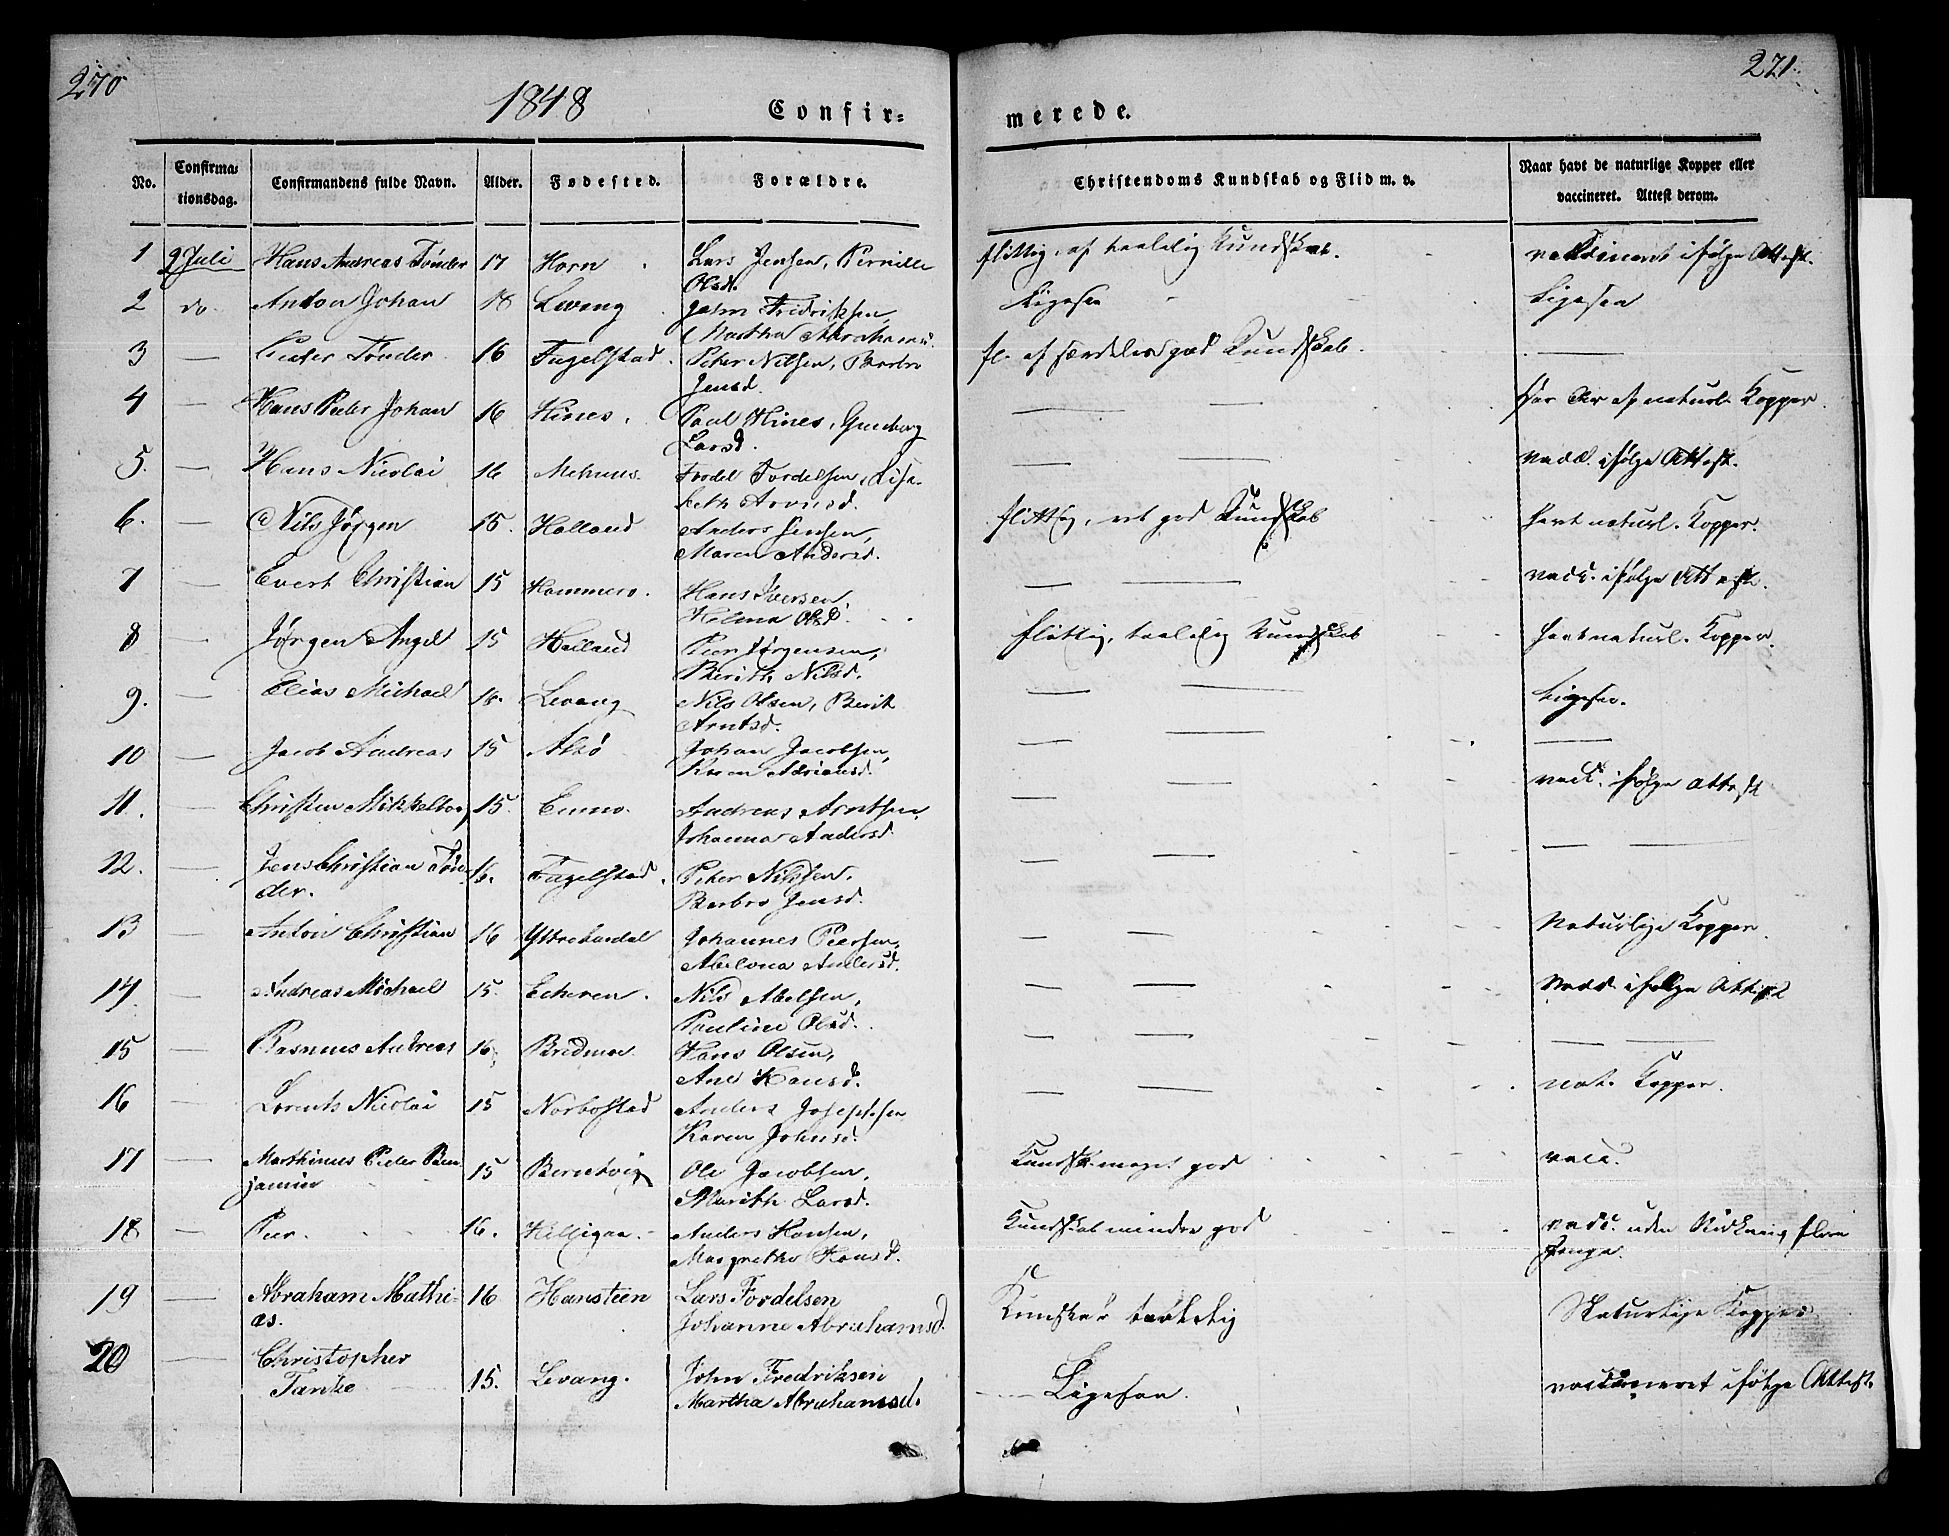 270
1848
Confir=
merede.
271.
No.
Confirma=
tionsdag.
Confirmandens fulde Navn.
Alder.
Fødested.
Forældre.
Christendoms Kundskab og Flid m. v.
Naar havt de naturlige Kopper eller
vaccineret. Attest derom.
1 9 Juli Hans Andreas Tønder 17 Horn Lars Jensen, Pernille flittig, af taalelig Kundskab. vaccineret ifølge Attest.
Olsd.
2 do. Anton Johan 18 Levang John Fredriksen, Ligesaa Ligesaa
Martha Abrahams
3 — Peder Tønder 16 Fagelstad. Peter Nilsen, Barbro fl. af særdeles god Kundskab. —
Jensd.
4 — Hans Peter Johan 16 Hines. Paul Hines, Gunborg — — Har Ar af naturl. Kopper.
Larsd.
5. — Hans Nicolai 16 Mehuus. Fordel Fordelsen, Lisa- — — vacc. ifølge Attest.
beth Arntsd.
6. — Nils Jørgen 15. Holland Anders Jensen, flittig, ret god Kundskab havt naturl. Kopper.
Maren Andersd.
7 — Evert Christian 15 Hammero. Hans Iversen — — vacc. ifølge Attest.
Helena Olsd.
8 — Jørgen Angel 15 Holland Peer Jørgensen, flittig, taalelig Kundskab havt naturl. Kopper.
Berith Nilsd.
9. — Elias Michael 18. Levang Nils Olsen, Berit — — Ligesaa.
Arntsd.
10 — Jacob Andreas 15 Alsø Johan Jacobsen, — — —
Karen Adriansd.
11. — Christen Mikkelborg 15. Enmo. Andreas Arntsen — — vacc. ifølge Attest
Johanna Andersd.
12. — Jens Christian Tøn- 16. Fagelstad. Peter Nilsen, — — — —
der. Barbro Jensd.
13 — Anton Christian 16 Yttrelardal Johannes Peersen, — — Naturlige Kopper.
Abelona Andersd.
14. — Andreas Michael 15. Echeren. Nils Abelsen, — — vacc. ifølge Attest
Pauline Olsd.
15 — Rasmus Andreas 16. Bredmoe Hans Olsen, — — — —
Ane Hansd.
16 — Lorents Nicolai 15 Norbostad Anders Josephsen — — nat. Kopper.
Karen Johnsd.
17 — Marthinus Peder Ben- 15 Berretvig Ole Jacobsen, Kundsk. meget god vacc.
jamin Marith Larsd.
18 — Peer. 16. Helligaa. Anders Hansen, Kundskab mindre god vacc. uden Virkning flere
Margrethe Hansd. Gange.
19 — Abraham Mathi- 16 Hansteen Lars Fordelsen Kundskab taalelig Naturlige Kopper
as. Johanne Abrahamsd.
20 — Christopher
Tanke 15. Levang. John Fredriksen Ligesaa. vaccineret ifølge Attest.
Martha Abrahamsd.